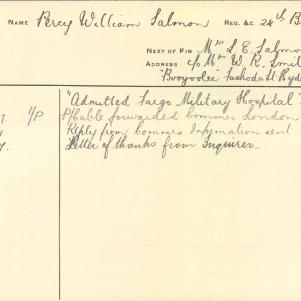 NAME Percy William Salmon REG. &C. 24th B
NEXT OF KIN Mrs L. E. Salmo
ADDRESS c/o Mrs W. R. Smil
"Booyoolee" Fashoda St Hyde
"Admitted Fargo Military Hospital
P/Cable forwarded Commrs London
Reply from Commrs Information sent
Letter of thanks from Inquirer.